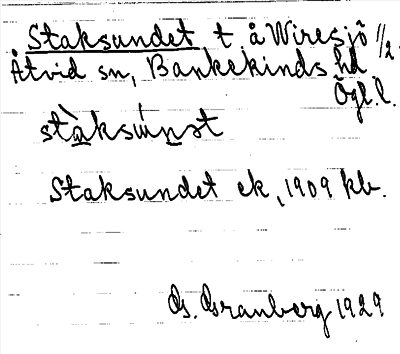 Staksundet t. å Wiresjö 1/2
Åtvid sn, Bankekinds hd
Ögl. l.
Staksundet ek, 1909 kb.
G. Granberg 1929